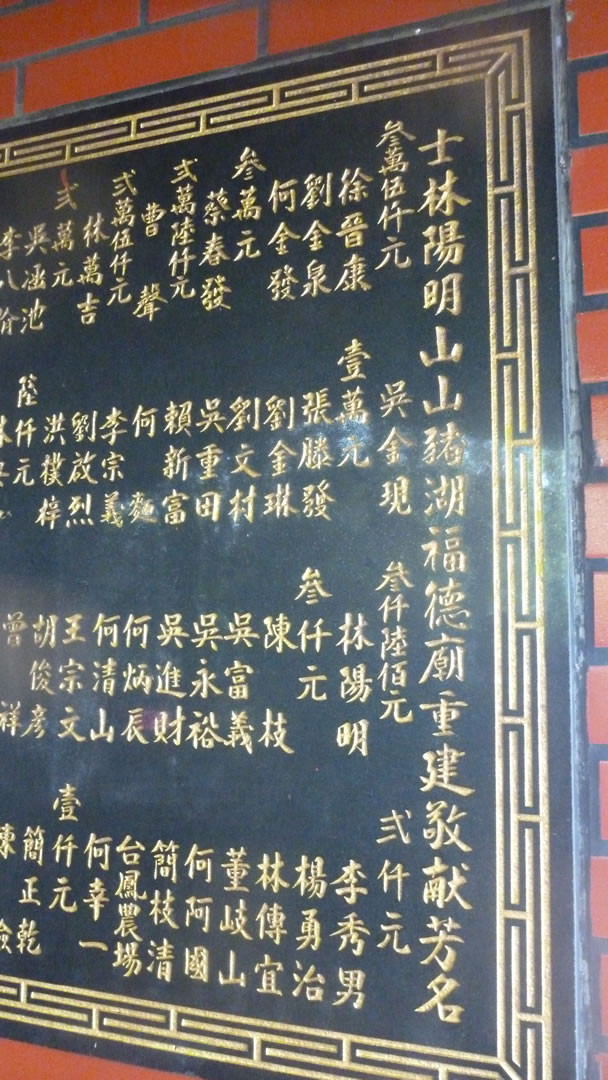 士林陽明山山豬湖福德廟重建敬献芳名
叁萬伍仟元
徐晉康
劉金泉
何金發
叁萬元
蔡春發
弍萬陸仟元
曹聲
弍萬伍仟元
林萬吉
弍萬元
吳涵池
吳金現
壹萬元
張滕發
劉金琳
劉文村
吳重田
賴新富
何麵
李宗義
劉啟烈
洪樸梓
陸仟元
叁仟陸佰元
林陽明
叁仟元
陳枝
吳富義
吳永裕
吳進財
何炳辰
何清山
王宗文
胡俊彥
曾祥
弍仟元
李秀男
楊勇治
林傳宜
董岐山
何阿國
簡枝清
台鳳農場
何幸一
壹仟元
簡正乾